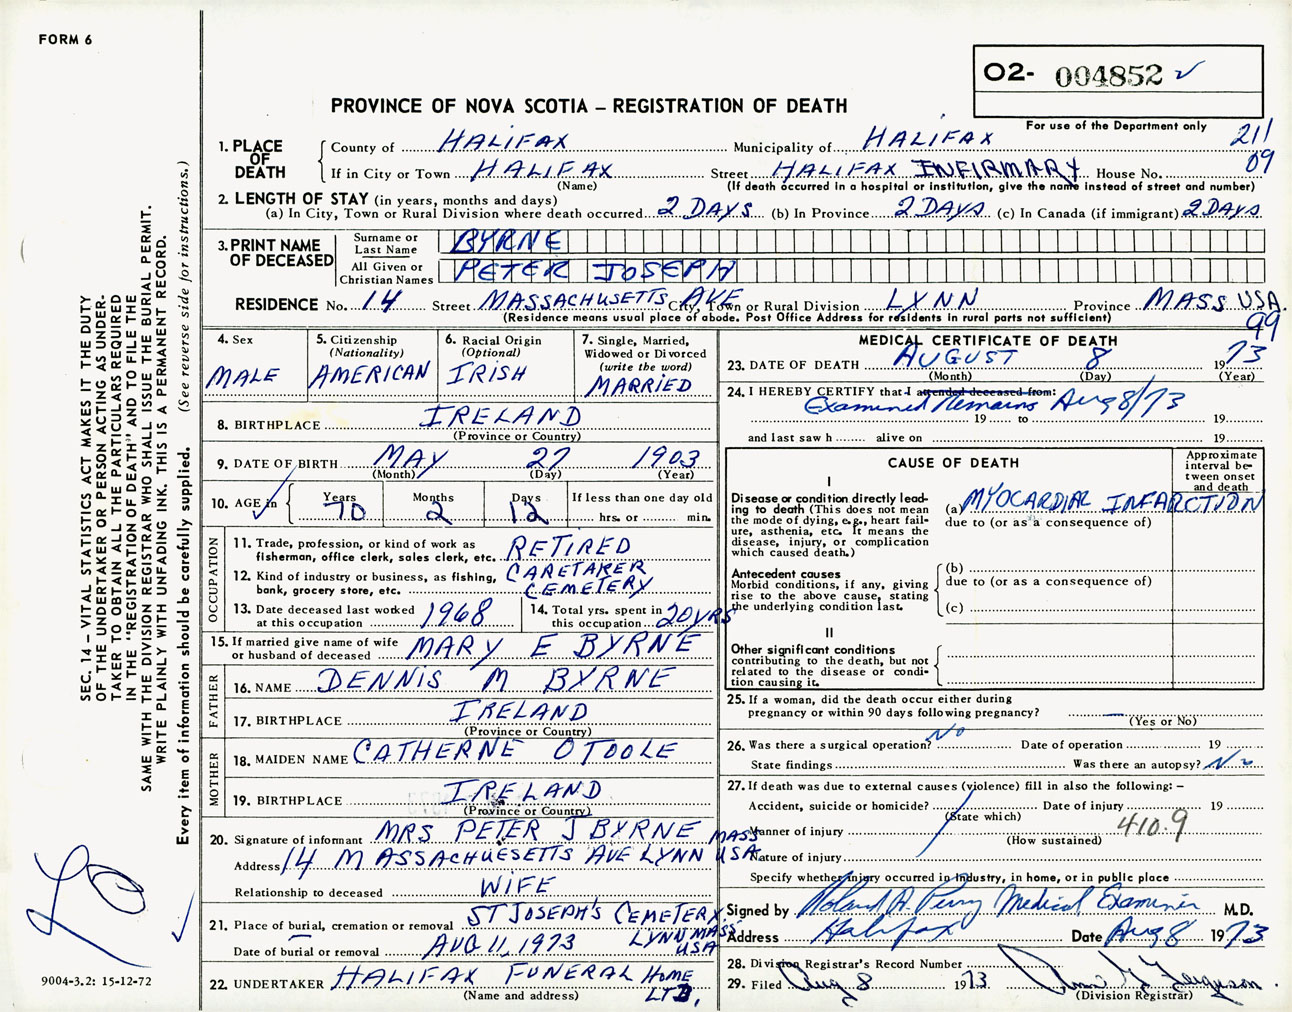 FORM 6
O2- 004852
PROVINCE OF NOVA SCOTIA – REGISTRATION OF DEATH
For use of the Department only
211
09
1. PLACE OF DEATH
County of HALIFAX Municipality of HALIFAX
If in City or Town HALIFAX Street HALIFAX INFIRMARY House No.
(Name) (If death occurred in a hospital or institution, give the name instead of street and number)
2. LENGTH OF STAY (in years, months and days)
(a) In City, Town or Rural Division where death occurred 2 DAYS (b) In Province 2 DAYS (c) In Canada (if immigrant) 2 DAYS
3. PRINT NAME OF DECEASED
Surname or Last Name BYRNE
All Given or Christian Names PETER JOSEPH
RESIDENCE No. 14 Street MASSACHUSETTS AVE City, Town or Rural Division LYNN Province MASS USA
(Residence means usual place of abode. Post Office Address for residents in rural parts not sufficient)
99
4. Sex
MALE
5. Citizenship
(Nationality)
AMERICAN
6. Racial Origin
(Optional)
IRISH
7. Single, Married,
Widowed or Divorced
(write the word)
MARRIED
8. BIRTHPLACE IRELAND
(Province or Country)
9. DATE OF BIRTH MAY 27 1903
(Month) (Day) (Year)
10. AGE in
Years Months Days If less than one day old
70 2 12 hrs. or min.
OCCUPATION
11. Trade, profession, or kind of work as RETIRED
fisherman, office clerk, sales clerk, etc.
12. Kind of industry or business, as fishing, CARETAKER
bank, grocery store, etc. CEMETERY
13. Date deceased last worked
at this occupation 1968
14. Total yrs. spent in
this occupation 20 YRS
15. If married give name of wife
or husband of deceased MARY E BYRNE
FATHER
16. NAME DENNIS M BYRNE
17. BIRTHPLACE IRELAND
(Province or Country)
MOTHER
18. MAIDEN NAME CATHERNE OTOOLE
19. BIRTHPLACE IRELAND
(Province or Country)
20. Signature of informant MRS PETER J BYRNE
Address 14 MASSACHUESETTS AVE LYNN MASS USA
Relationship to deceased WIFE
21. Place of burial, cremation or removal ST JOSEPH'S CEMETERY
LYNN MASS USA
Date of burial or removal AUG 11, 1973
22. UNDERTAKER HALIFAX FUNERAL HOME LTD,
(Name and address)
MEDICAL CERTIFICATE OF DEATH
23. DATE OF DEATH AUGUST 8 1973
(Month) (Day) (Year)
24. I HEREBY CERTIFY that I attended deceased from:
Examined Remains Aug 8/73
19 to 19
and last saw h alive on 19
CAUSE OF DEATH
Approximate interval between onset and death
I
Disease or condition directly lead-
ing to death (This does not mean
the mode of dying, e.g., heart fail-
ure, asthenia, etc. It means the
disease, injury, or complication
which caused death.)
(a) MYOCARDIAL INFARCTION
due to (or as a consequence of)
Antecedent causes
Morbid conditions, if any, giving
rise to the above cause, stating
the underlying condition last.
(b)
due to (or as a consequence of)
(c)
II
Other significant conditions
contributing to the death, but not
related to the disease or condi-
tion causing it.
25. If a woman, did the death occur either during
pregnancy or within 90 days following pregnancy? —
(Yes or No)
26. Was there a surgical operation? No Date of operation 19
State findings Was there an autopsy? No
27. If death was due to external causes (violence) fill in also the following: –
Accident, suicide or homicide? Date of injury 19
(State which)
Manner of injury 410.9
(How sustained)
Nature of injury
Specify whether injury occurred in industry, in home, or in public place
Signed by Roland A. Perry Medical Examiner M.D.
Address Halifax Date Aug 8 1973
28. Division Registrar's Record Number
29. Filed Aug 8 1973 Ferguson
(Division Registrar)
SEC. 14 – VITAL STATISTICS ACT MAKES IT THE DUTY
OF THE UNDERTAKER OR PERSON ACTING AS UNDER-
TAKER TO OBTAIN ALL THE PARTICULARS REQUIRED
IN THE "REGISTRATION OF DEATH" AND TO FILE THE
SAME WITH THE DIVISION REGISTRAR WHO SHALL ISSUE THE BURIAL PERMIT.
WRITE PLAINLY WITH UNFADING INK. THIS IS A PERMANENT RECORD.
Every item of information should be carefully supplied. (See reverse side for instructions.)
9004-3.2: 15-12-72